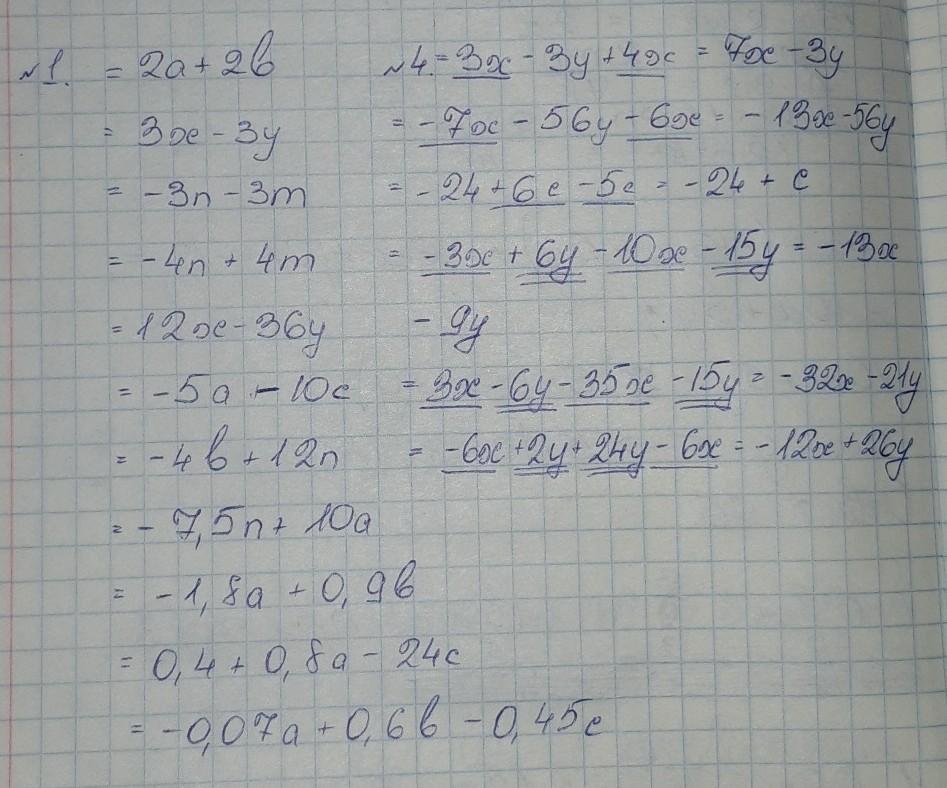 №1. = 2a + 2b
= 3x - 3y
= -3n - 3m
= -4n + 4m
= 12x - 36y
= -5a - 10c
= -4b + 12n
= - 7,5n + 10a
= -1,8a + 0,9b
= 0,4 + 0,8a - 24c
= -0,07a + 0,6b - 0,45c
№4. = 3x - 3y + 4x = 7x - 3y
= -7x - 56y - 6x = -13x - 56y
= -24 + 6c - 5c = -24 + c
= -3x + 6y - 10x - 15y = -13x
- 9y
= 3x - 6y - 35x - 15y = -32x - 21y
= -6x + 2y + 24y - 6x = -12x + 26y